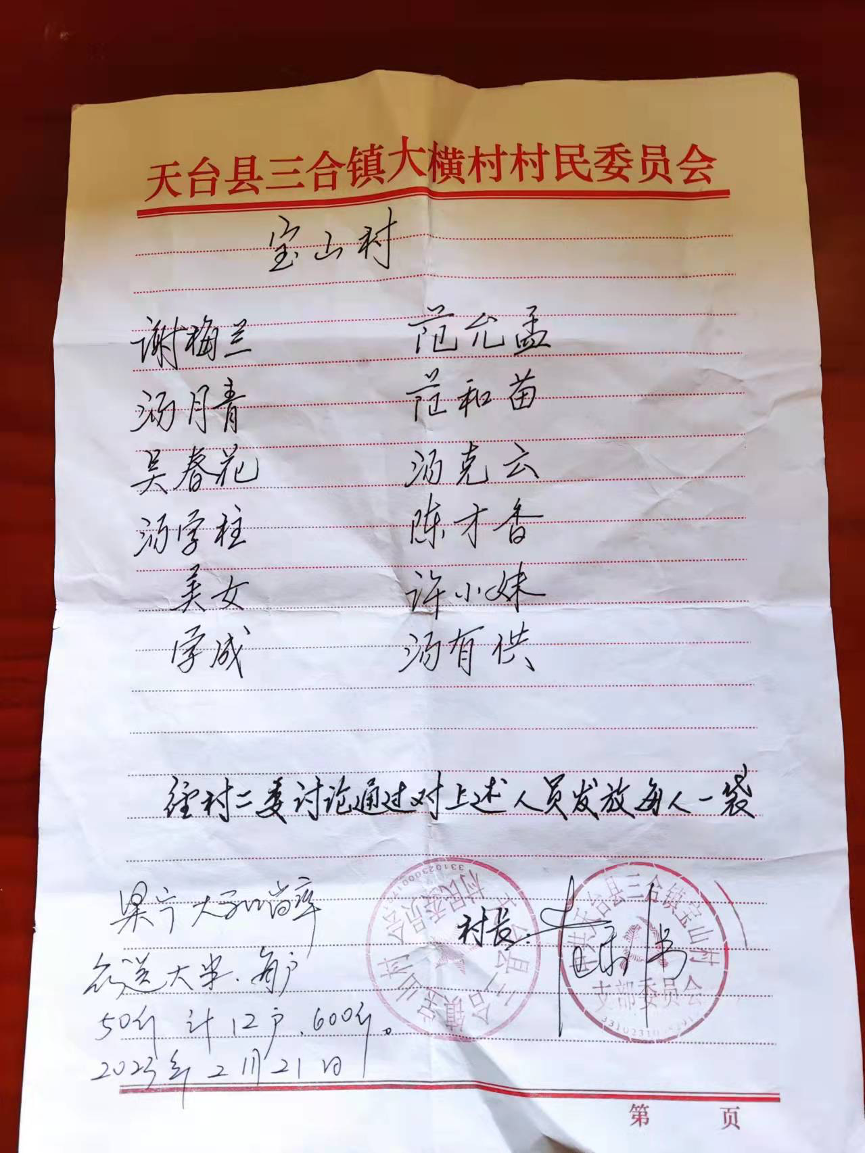 天台县三合镇大横村村民委员会
宝山村
谢梅兰 范允孟
汤月青 范和苗
吴春花 汤克云
汤学柱 陈才香
美女 许小妹
学成 汤有供
经村二委讨论通过对上述人员发放每人一袋
村长:
大和尚
送大米.每户
50斤 计12户.600斤。
2023年2月21日
天台县三合镇宝山村
支部委员会
第 页